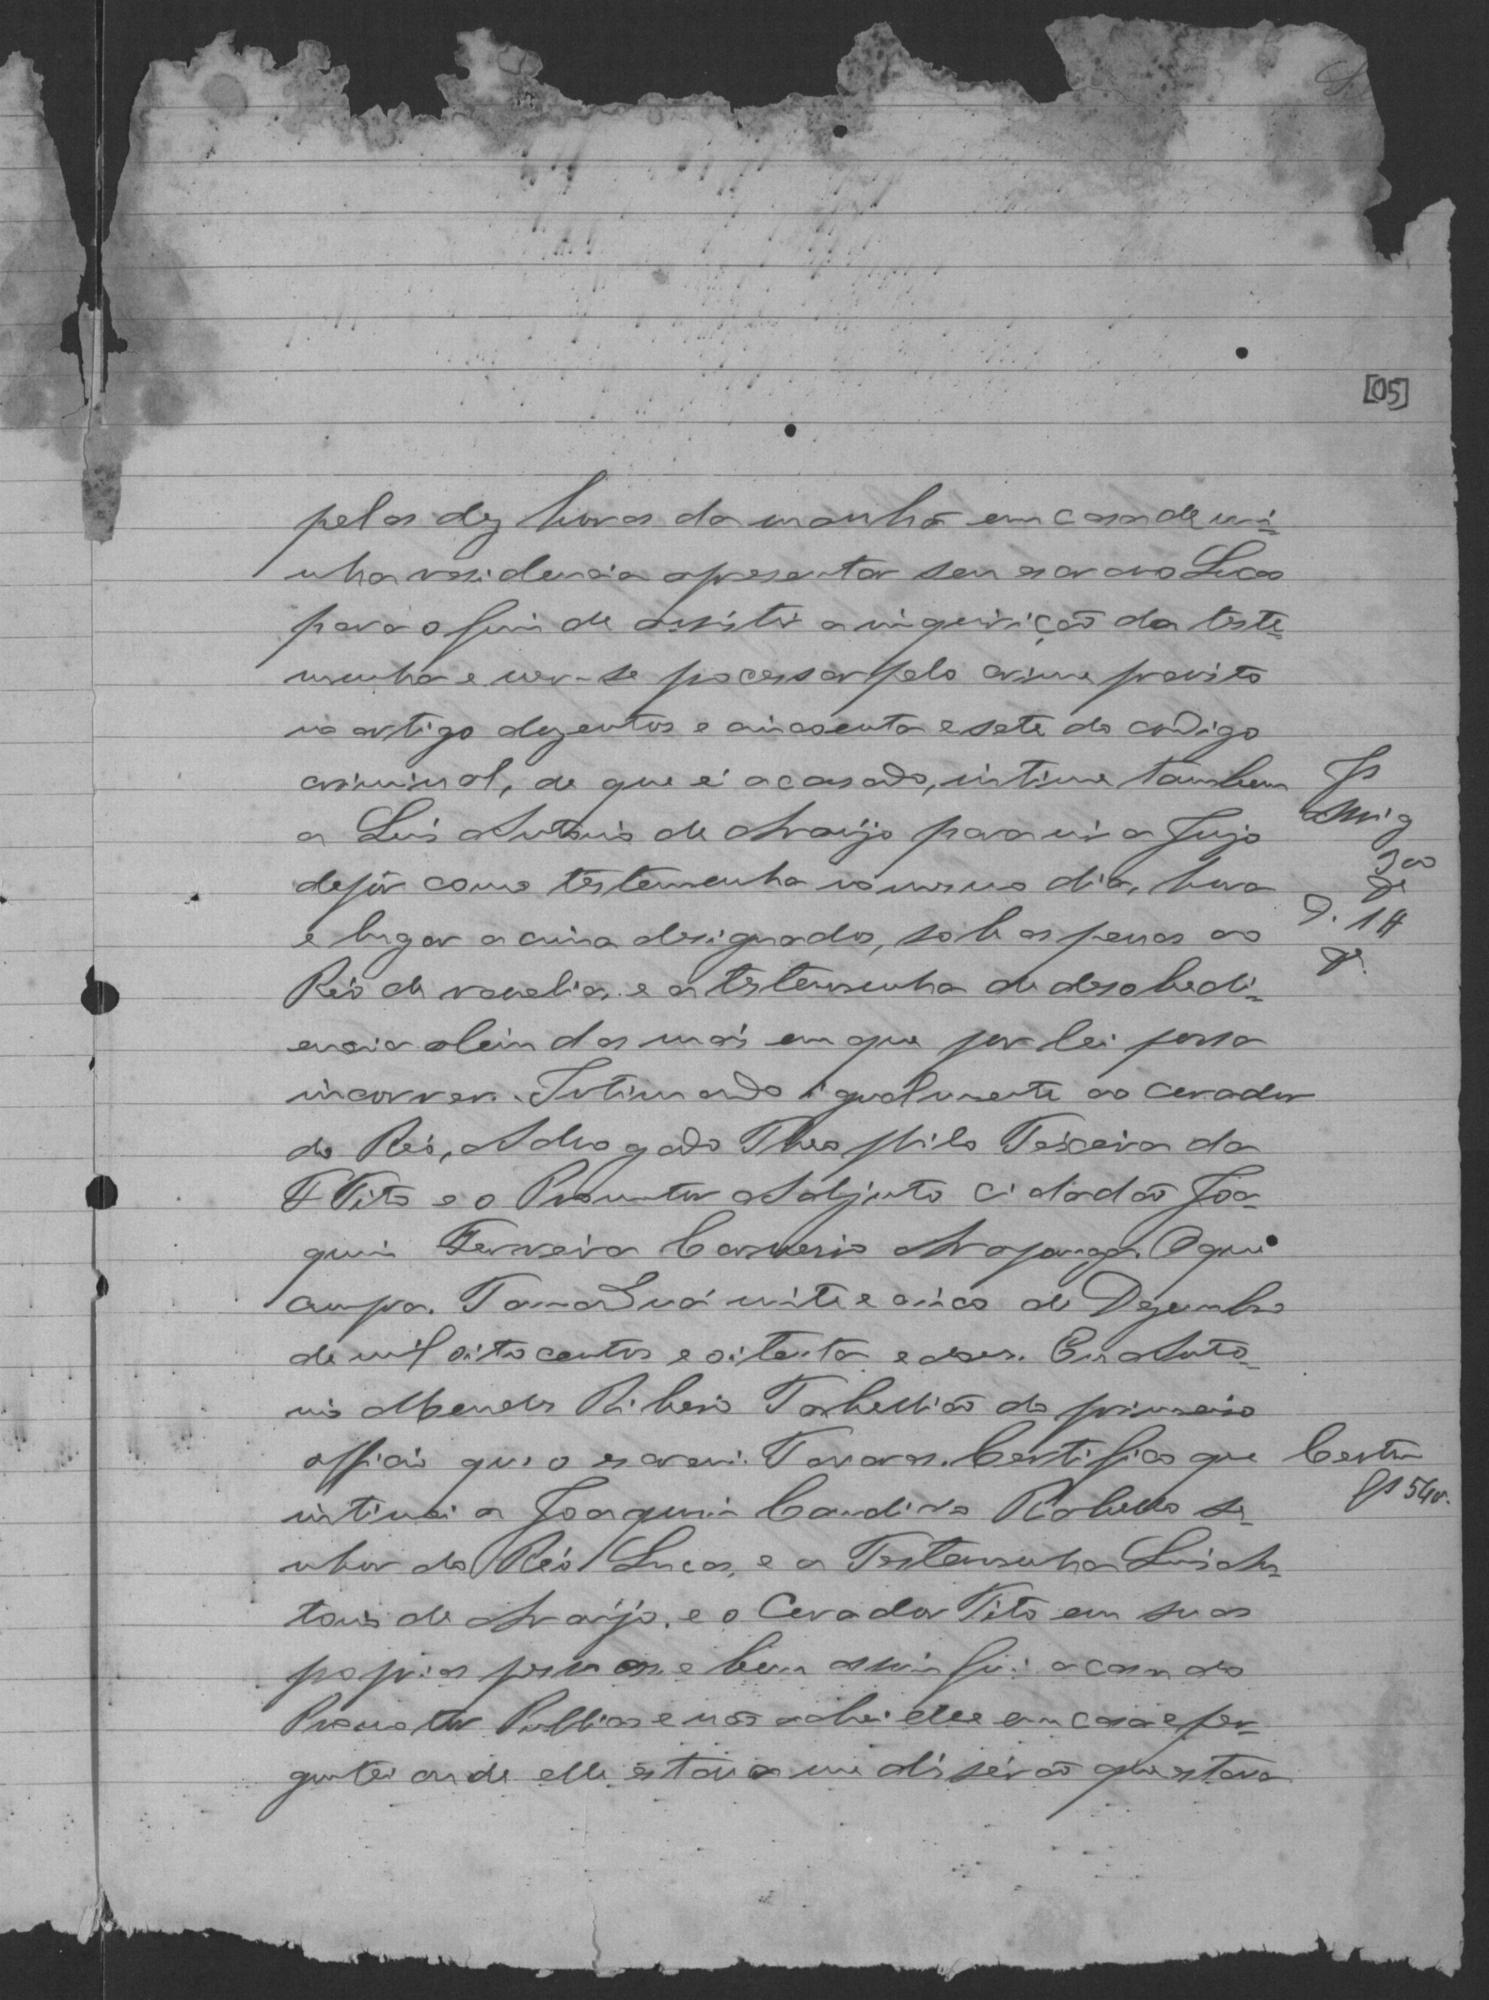 [05]
pelas dez horas da manhã em casa de mi-
nha residencia apresentar seu escravo Lucas
para o fim de assistir a inquirição da teste-
munha e ver-se pocessar pelo crime previsto
no artigo dezentos e cincoenta e sete do codigo
criminal, de que é acusado, intime tambem
a Luis Antonio de Araújo para vir a Juizo
depôr como testemunha no mesmo dia, hora
e lugar acima designados, sob as penas ao
Réo de revelia, e a testemunha de desobedi-
encia alem das mais em que por lei possa
incorrer. Intimando igualmente ao Curador
do Réo, Advogado Theophilo Teixeira da
Tito e o Promutor Adjunto Cidadão Joa-
quim Ferreira Carneiro Arapanga. O que
cumpra. Tamanduá vinte e cinco de Dezembro
de mil oito centos e oitenta e . Eu Anto-
nio Mendes Ribeiro Tabellião do primeiro
officio que o escrevi. Tavares. Certifico que
intimei a Joaquim Candido Rabello se-
nhor do Réo Lucas, e a Testemunha Luis An-
tonio de Araújo, e o Curador Tito em suas
popias pessoas e bem assim fui a casa do
Promotor Publico e não achei elle em casa e per-
guntei onde elle estava me disserão que estava
Js
Amig
300
D. 1#
Certm
fls 54v.